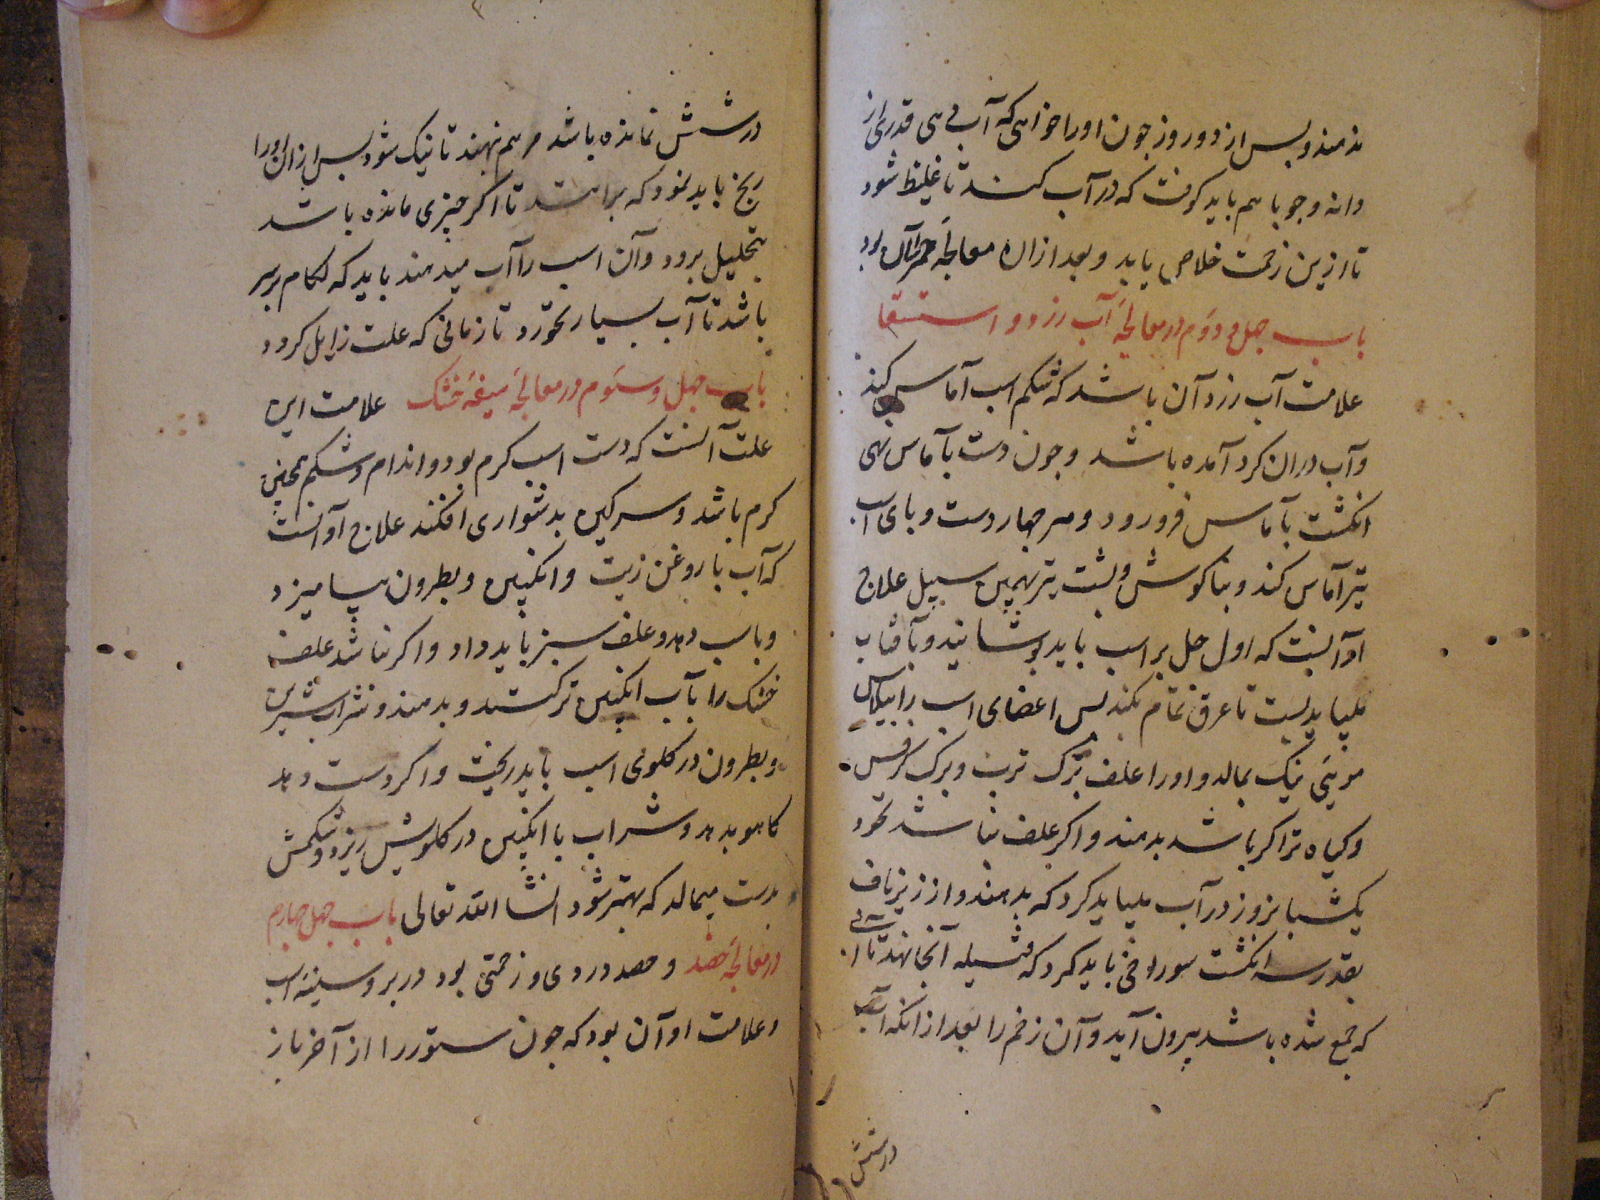 بدهند و بس از دو روز جون او را خواهی که آب دهی قدری از
دانه و جو با هم باید کرفت که در آب کنند تا غلیظ شود
تا ازین زحمت خلاص یابد و بعد ازان معالجه بود
باب جهل و دوم در معالجه آب زرد و استسقا
علامت آب زرد آن باشد که شکم اسب آماس کند
و آب دران کرد آمده باشد و جون دست بآماس نهی
انکشت بآماس فرو رود و هر جهار دست و بای اسب
نیز آماس کند و بناکوش و بشت نیز بهمین سبیل علاج
او آنست که اول جل بر اسب باید بوشانید و بآفتاب
بباید بست تا عرق تمام بکند بس اعضای اسب را
نیک بمالد و او را علف برک ترب و برک کرفس
و کیاه تر اکر باشد بدهند و اکر علف نباشد نخود
یکشبانروز در آب بباید کرد که بدهند و از زیر ناف
بقدر سه انکشت سوراخی باید کرد که فتیله آنجا نهند تا آبی
که جمع شده باشد بیرون آید و آن زخم را بعد از آنکه آب
درشش
درشش نمانده باشد مرهم نهند تا نیک شود بس ازان او را
رنج باید نمود که براند تا اکر چیزی مانده باشد
بتحلیل برود و آن اسب را آب میدهند باید که لکام بر سر
باشد تا آب بسیار نخورد تا زمانی که علت زایل کردد
باب جهل و سوم در معالجه خشک علامت این
علت آنست که دست اسب کرم بود و اندام و شکم همجنین
کرم باشد و سرکین بدشواری افکند علاج او آنست
که آب با روغن زیت و انکبین و بطرون بیامیزد
و باب دهد و علف سبز باید داد و اکر نباشد علف
خشک را بآب انکبین تر کنند و بدهند و شراب شیرین
و بطرون در کلوی اسب باید ریخت و اکر دست دهد
کاهو بدهد و شراب با انکبین در کلویش ریزد و شکمش
بدست میمالد که بهتر شود انشا الله تعالی باب جهل جهارم
در معالجه حصد و حصد دردی و زحمتی بود در بر و سینه اسب
و علامت او آن بود که جون ستور را از آخر باز